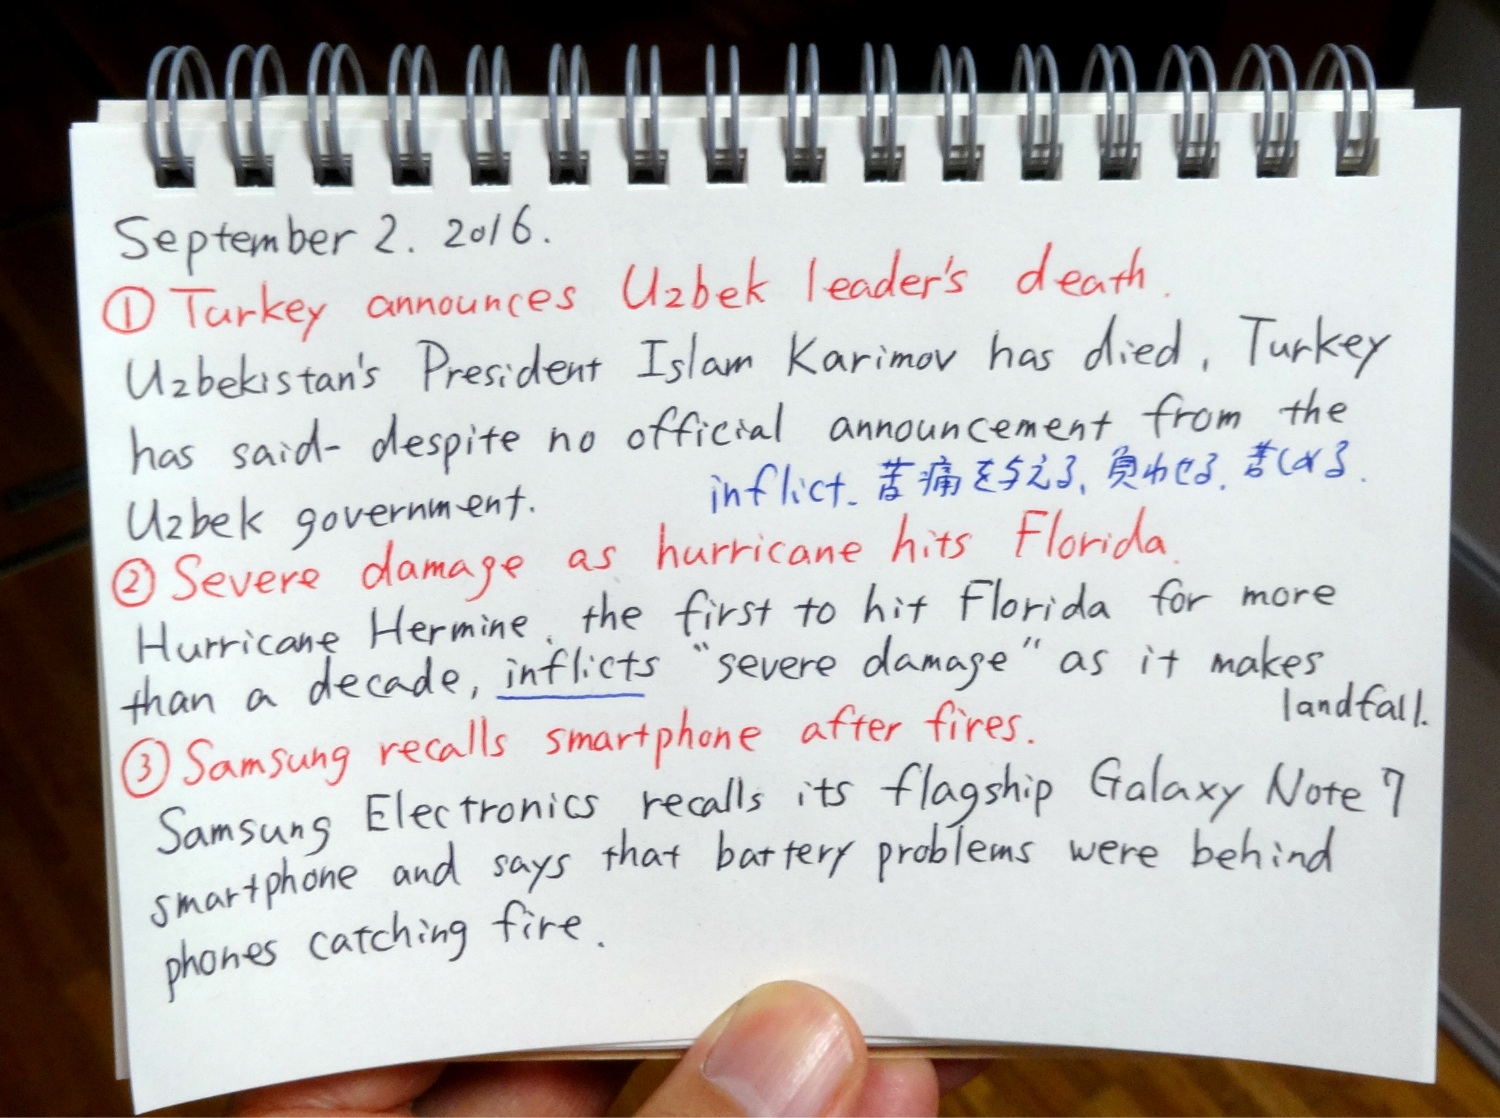 September 2. 2016.
① Turkey announces Uzbek leader's death.
Uzbekistan's President Islam Karimov has died, Turkey
has said- despite no official announcement from the
Uzbek government.
inflict. 苦痛を与える、負わせる、苦しめる.
② Severe damage as hurricane hits Florida.
Hurricane Hermine, the first to hit Florida for more
than a decade, inflicts "severe damage" as it makes
landfall.
③ Samsung recalls smartphone after fires.
Samsung Electronics recalls its flagship Galaxy Note 7
smartphone and says that battery problems were behind
phones catching fire.